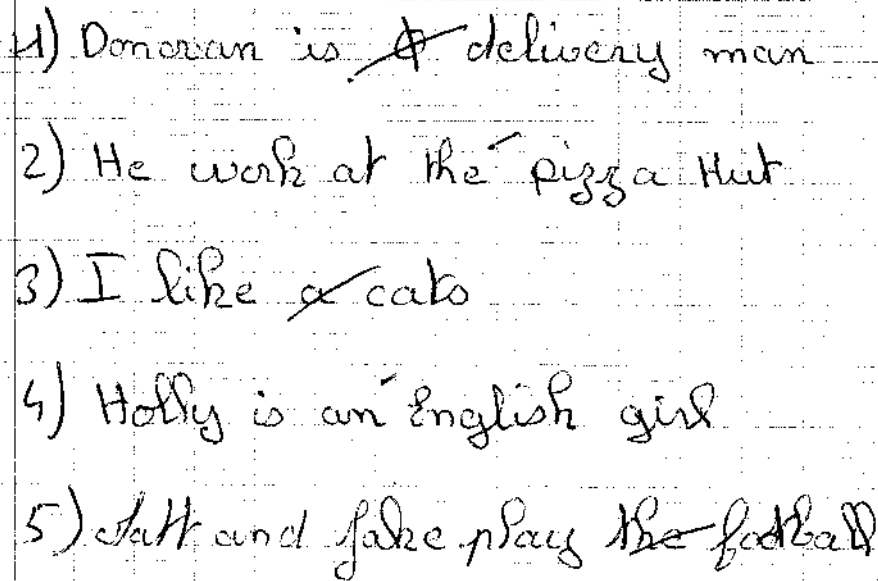 1) Donovan is delivery man
2) He work at the pizza Hut
3) I like a cats
4) Holly is an English girl
5) Matt and Jake play the football